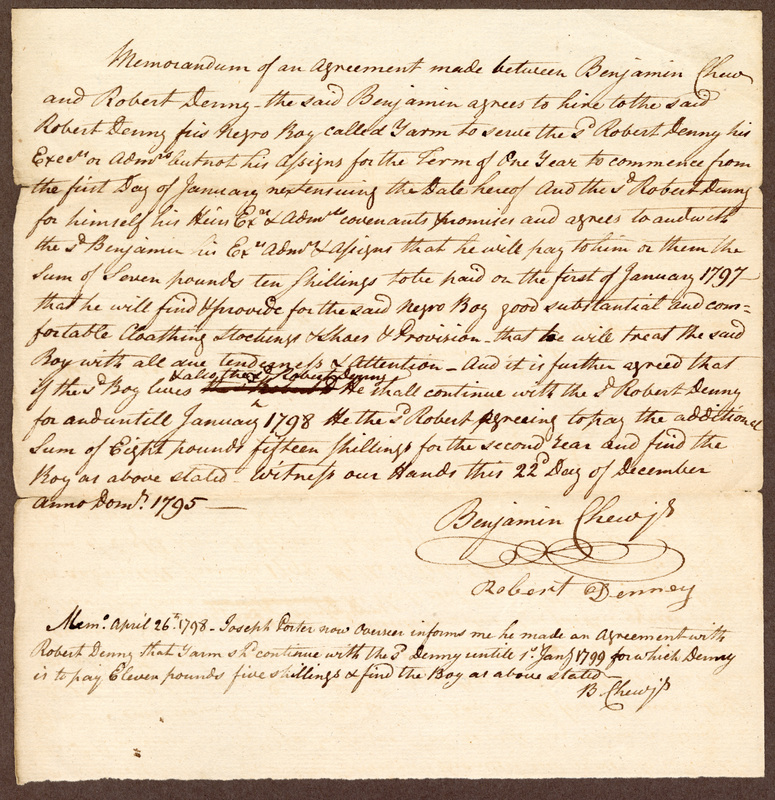 Memorandum of an Agreement made between Benjamin Chew
and Robert Denny - the said Benjamin agrees to hire to the said
Robert Denny his Negro Boy called Yarm to serve the sd Robert Denny his
Execrs or Admrs but not his assigns for the Term of One Year to commence from
the first Day of January next ensuing the Date hereof And the sd Robert Denny
for himself his Heirs Exrs & Admrs covenants & promises and agrees to and with
the sd Benjamin his Exrs Admrs & assigns that he will pay to him or them the
Sum of Seven pounds ten shillings to be paid on the first of January 1797
that he will find & provide for the said Negro Boy good substantial and com=
fortable Cloathing Stockings & Shoes & Provision - that he will treat the said
Boy with all due tenderness & Attention - And it is further agreed that
& also the sd Robert Denny
if the sd Boy lives He shall continue with the sd Robert Denny
for and until January 1798 He the sd Robert agreeing to pay the additional
Sum of Eight pounds fifteen shillings for the second Year and find the
Boy as above stated - Witness our Hands this 22d Day of December
Anno Domi. 1795 -
Benjamin Chew jr
Robert Denney
Memo. April 26th. 1798 - Joseph Porter now Overseer informs me he made an Agreement with
Robert Denny that Yarm shd continue with the sd Denny until 1st Jany 1799 for which Denny
is to pay Eleven pounds five shillings & find the Boy as above stated -
B Chew jr